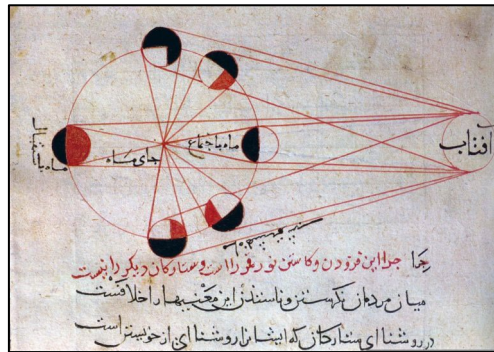 افتاب
ماه باجتماع
جای ماه
ماه باستقبال
چرا این فزودن و کاستن نور قمر را است و ستارکان دیکر را نیست
میان مردمان این معنیها را خلافست
در روشنا ای ستارکان که ایشانرا روشنا ای از خویشتن است